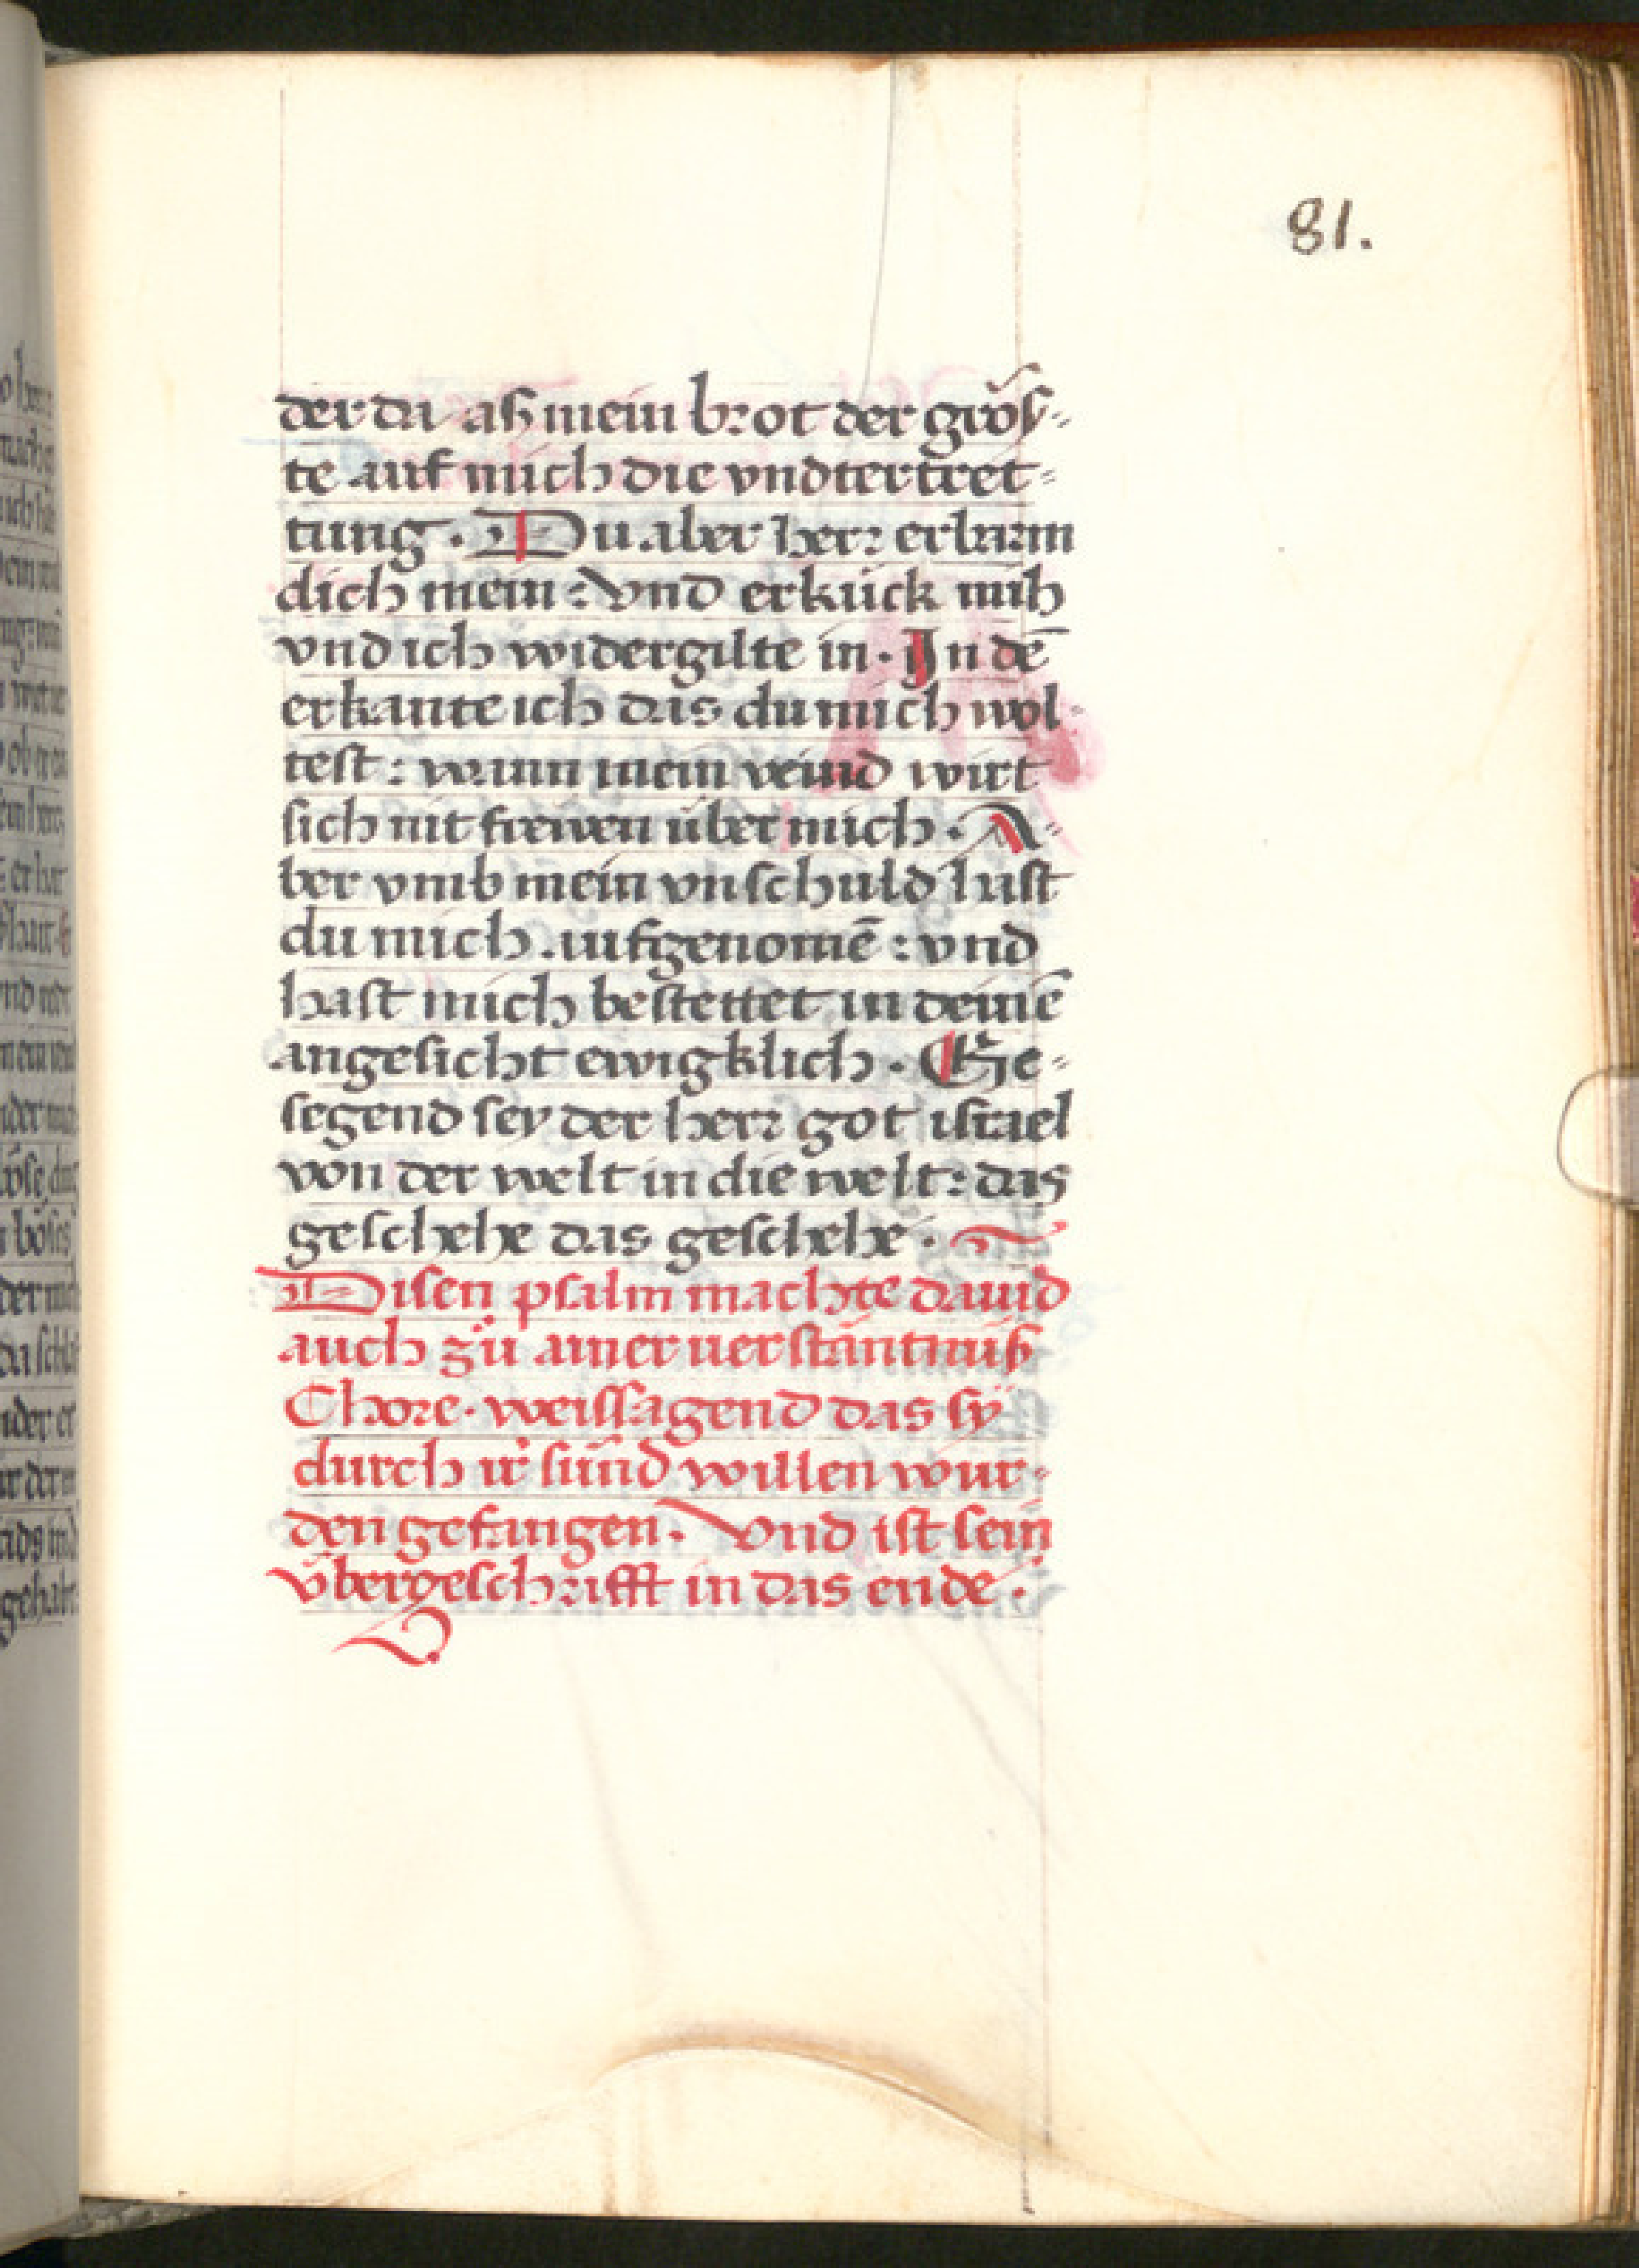 81.
der da aß mein brot der grös-
te auf mich die vndtertret-
tung. Du aber herr erbarm
dich mein: Vnd erkück mih
vnd ich widergilte in. In dē
erkante ich das du mich wol-
test: wann mein veind wirt
sich nit frewen über mich. A-
ber vmb mein vnschuld hast
du mich aufgenomē: vnd
hast mich bestettet in deinē
angesicht ewigklich. Ge-
segend sey der herr got israel
von der welt in die welt: das
geschehe das geschehe.
Disen psalm machte dauid
auch zů ainer uerstäntnuß
Chore. weissagend das sÿ
durch ir sünd willen wur-
den gefangen. Vnd ist sein
v̈bergeschrifft in das ende.